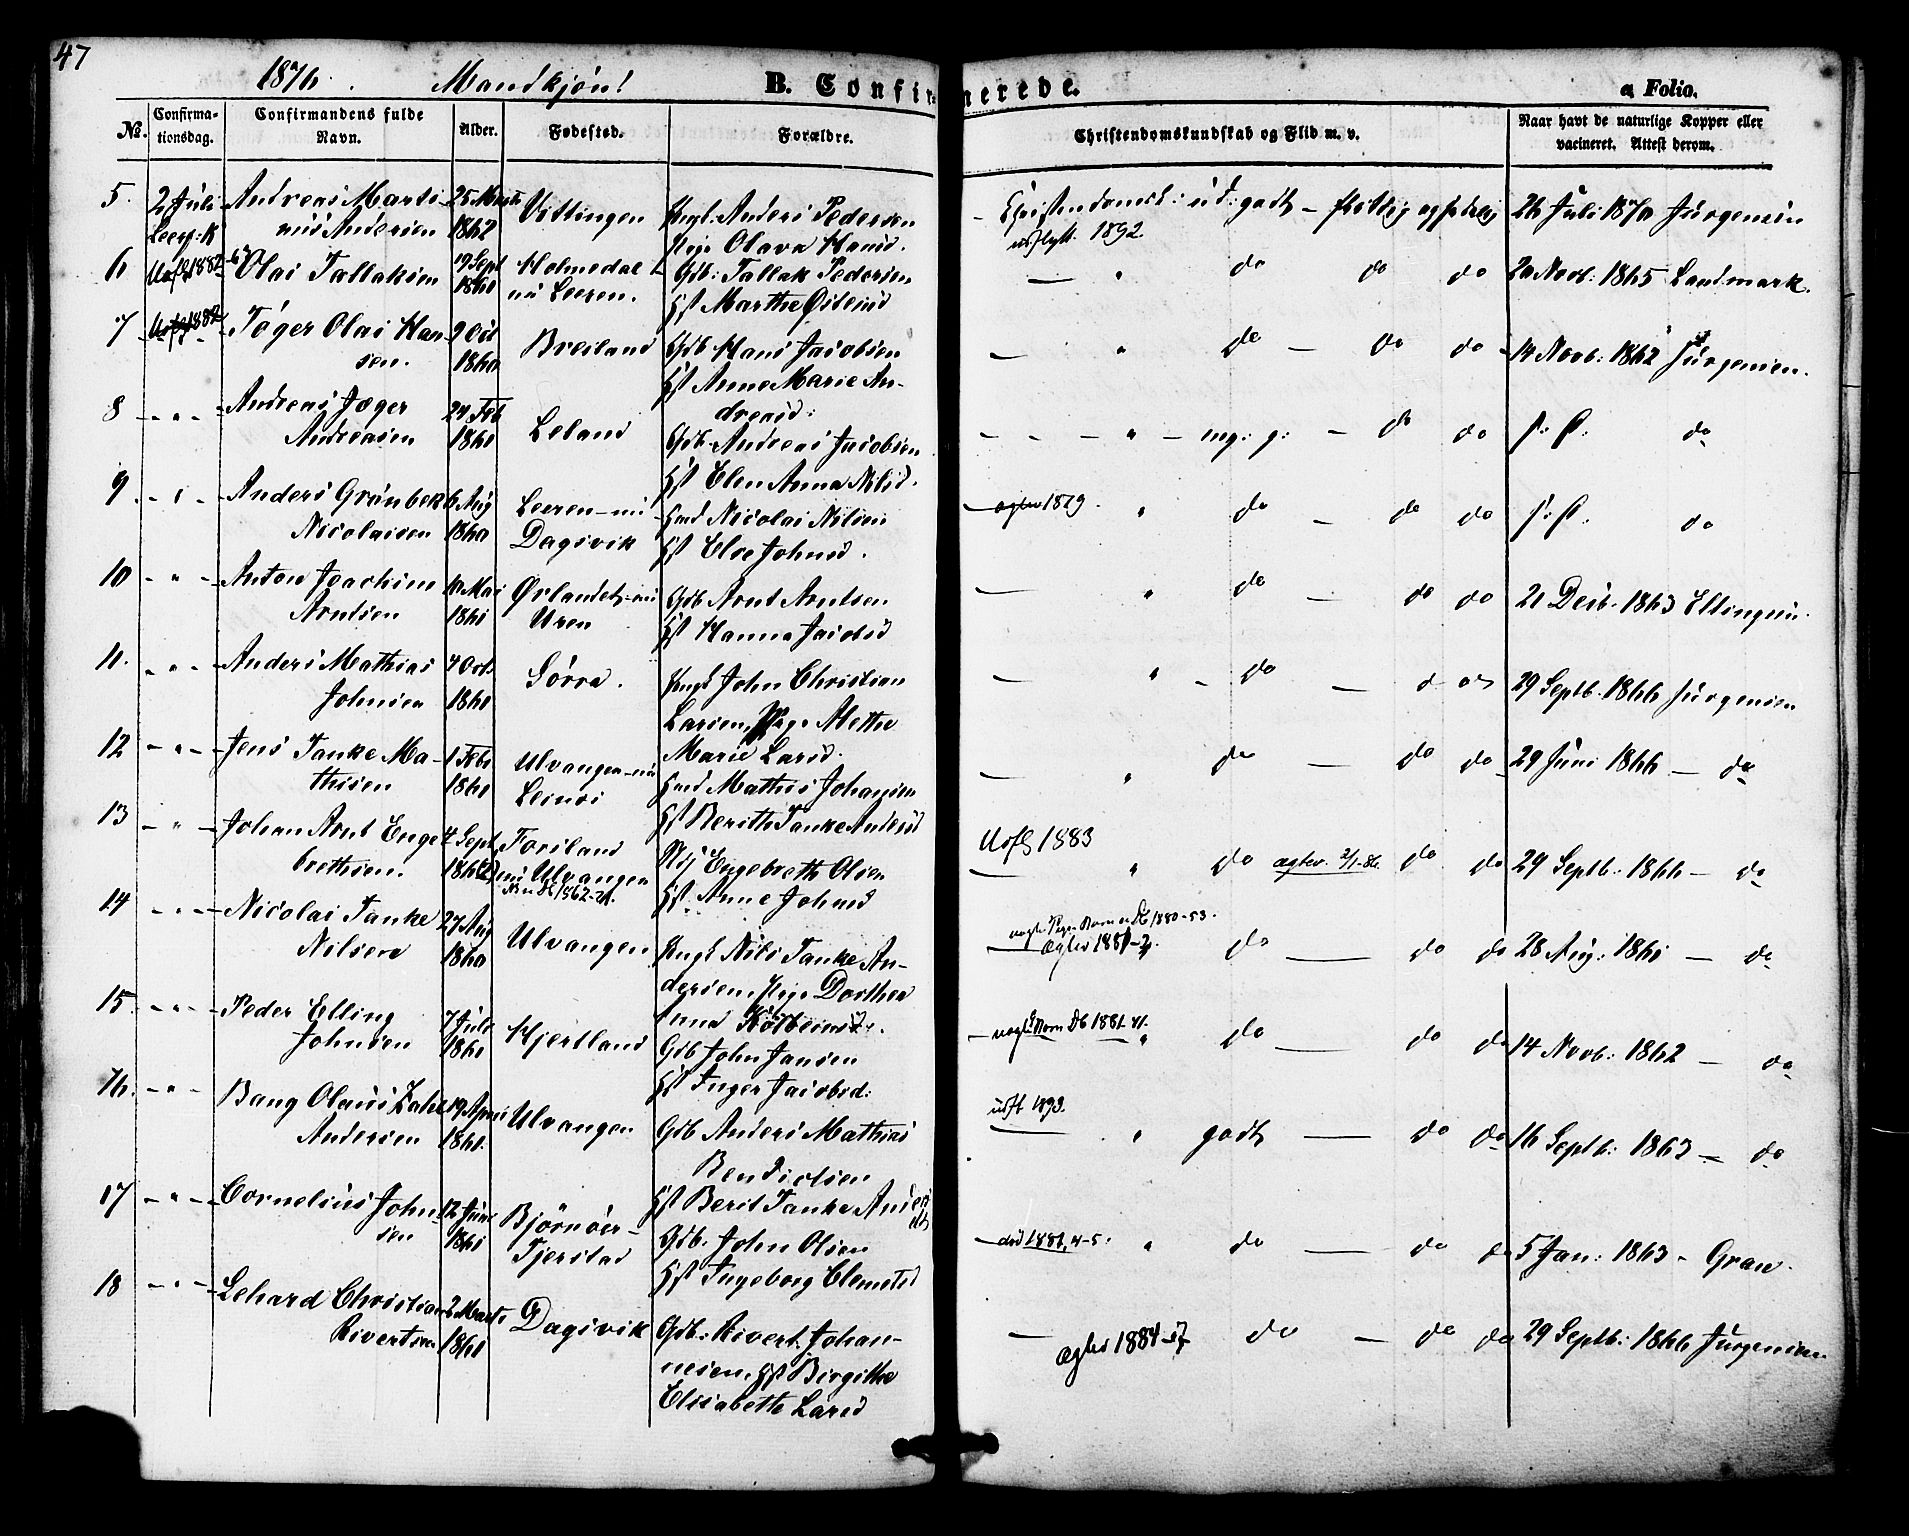 47
1876. Mandkjøn!
B. Confirmerede.
a Folio.
No.
Confirma-
tionsdag.
Confirmandens fulde
Navn.
Alder.
Fødested.
Forældre.
Christendomskundskab og Flid m. v.
Naar havt de naturlige Kopper eller
vacineret. Attest derom.
5. 2 Juli Andreas Marti- 25 Marts Vittingen Ungk. Anders Pedersen
Leerf: K nius Andersen 1862 Pige Olava Hansd.
Christendomsk: ud: godt – flittig og
26 Juli 1870 Jürgensen
udflytt. 1892.
6 Udfl 1882 Olai Tallaksen 17 Sept 1861 Holmedal
nu Leeren. Gdb: Tallak Pedersen
Hst Marthe Østensd
— " do do do 20 Novb: 1865 Landmark.
7 Udfl 1882 Tøger Olai Han-
sen. 9 Oct 1860 Breiland Gdb Hans Jacobsen
Hst Anne Marie An-
dreasd:
— " do — do do 14 Novb: 1862 Jürgensen.
8 – " – Andreas Jøger
Andreasen 24 Feb 1861 Leland Gdb. Andreas Jacobsen
Hst Elen Anna Nilsd.
– – – " – mg: g: — do do do
9. – " – Anders Grønbek
Nicolaisen 6 Aug 1860 Leeren – nu
Dagsvik Hmd Nicolai Nilsen
Hst Else Johnsd.
— ægtev 1879. " do – do do do
10 – " – Anton Joachim
Arntsen 10 Mai 1861 Ørlandet – nu
Uren Gdb Arnt Arntsen
Hst Hanna Jacobsd
— " do — do do 21 Decb. 1863 Ellingsen.
11. – " – Anders Mathias
Johnsen 4 Octb 1861 Sørra. Ungk John Christian
Larsen, Pige Alethe
Marie Larsd.
— " – do — do 29 Septb. 1866 Jürgensen
12 – " – Jens Tanke Ma-
thisen 1 Feb 1861 Ulvangen – nu
Leinesi Hmd Mathis Johansen
Hst Berith Tanke Andersd
— " do — do do 29 Juni 1866 — do
13 – " – Johan Arnt Enge-
brethsen. 4 Sept 186(2) Forsland
nu Ulvangen
Gdb 1862-21. Engebreth Olsen
Hst Anne Johnsd
Udfl 1883
" do ægtev. 2/1-86. do do 29 Septb: 1866 – do
14 – " – Nicolai Tanke
Nilsen 27 Aug 1860 Ulvangen Ungk Nils Tanke An-
dersen, Pige Dorthea
Anna Kolbeinsd.
uægte Barn Db 1880-53.
Ægtev 1881-7. do — do do 28 Aug: 1861 — do
15. – " – Peder Elling
Johnsen 7 Juli 1861 Hjertland Gdb John Jansen
Hst Inger Jacobsd:
– uægte Barn Db 1881 41. " do — do do 14 Novb: 1862 – do
16. – " – Bang Olaus Zahl
Andersen 19 April 1861. Ulvangen Gdb Anders Mathias
Bendictsen
Hst Berit Tanke Anders
dtr
udfl 1893.
— " godt — do do 16 Septb: 1863 – do
17 – " – Cornelius John-
sen 12 Juni 1861 Bjørnøer –
Tjerstad Gdb. John Olsen
Hst Ingeborg Clemetsd
– død 1881, 4-5. " do — do do 5 Jan: 1863 – Gran.
18 – " – Lehard Christian
Rivertsen 2 Marts 1861 Dagsvik Gdb: Rivert Johan-
nesen, Hst Birgithe
Elisabeth Larsd
— Ægtev 1884-17 do — do do 29 Septb: 1866 Jürgensen